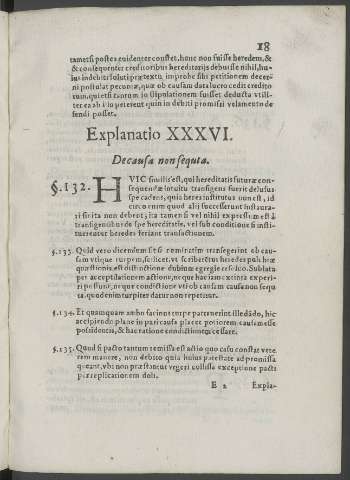 18
tametsi postea euidenter constet, hunc non fuisse heredem, &
& consequenter creditoribus hereditarijs debuisse nihil, hu-
ius indebiti soluti prætextu, improbe sibi petitionem decer-
ni postulat pecuniæ, quæ ob causam data lucro cedit credito
rum, qui etsi tantum in stipulationem fuisset deducta vtili-
ter ea ab illo peteret quin in debiti promissi velamento de
fendi posset.
Explanatio XXXVI.
De causa non sequta.
§. 132. HVIC similis est, qui hereditatis futuræ con-
sequendæ intuitu transigens fuerit delusus
spe cadens, quia heres institutus non est, id
circo enim quod alij successerunt instaura-
ri finita non debent, ita tamen si vel nihil expressum est
transigentibus de spe hereditatis, vel sub conditione si insti-
tuerentur heredes fœriant transactionem.
§. 133. Quid vero dicendum si
causam vtique turpem, scilicet, vt scriberetur heredes pulchræ
quæstionis est distinctione dubium egregie resoluo. Sublata
per acceptilationem actione, vtique hac iam extincta experi-
ri possunt, neque condictione vti ob causam causa non sequ
ta, quod enim turpiter datur non repetitur.
§. 134. Et quamquam ambo fariont turpe patrauerint, ille dādo, hic
accipiendo plane in pari causa placet potiorem causam esse
possidentis, & hac ratione condictionem cessare.
§. 135. Quod si pacto tantum remissa est actio quo casu constat vete
rem manere, non debito quia huius potestate ad promissa
queant, vbi non præstantur vrgeri collisa exceptione pacti
per replicationem doli.
E 2 Expla-